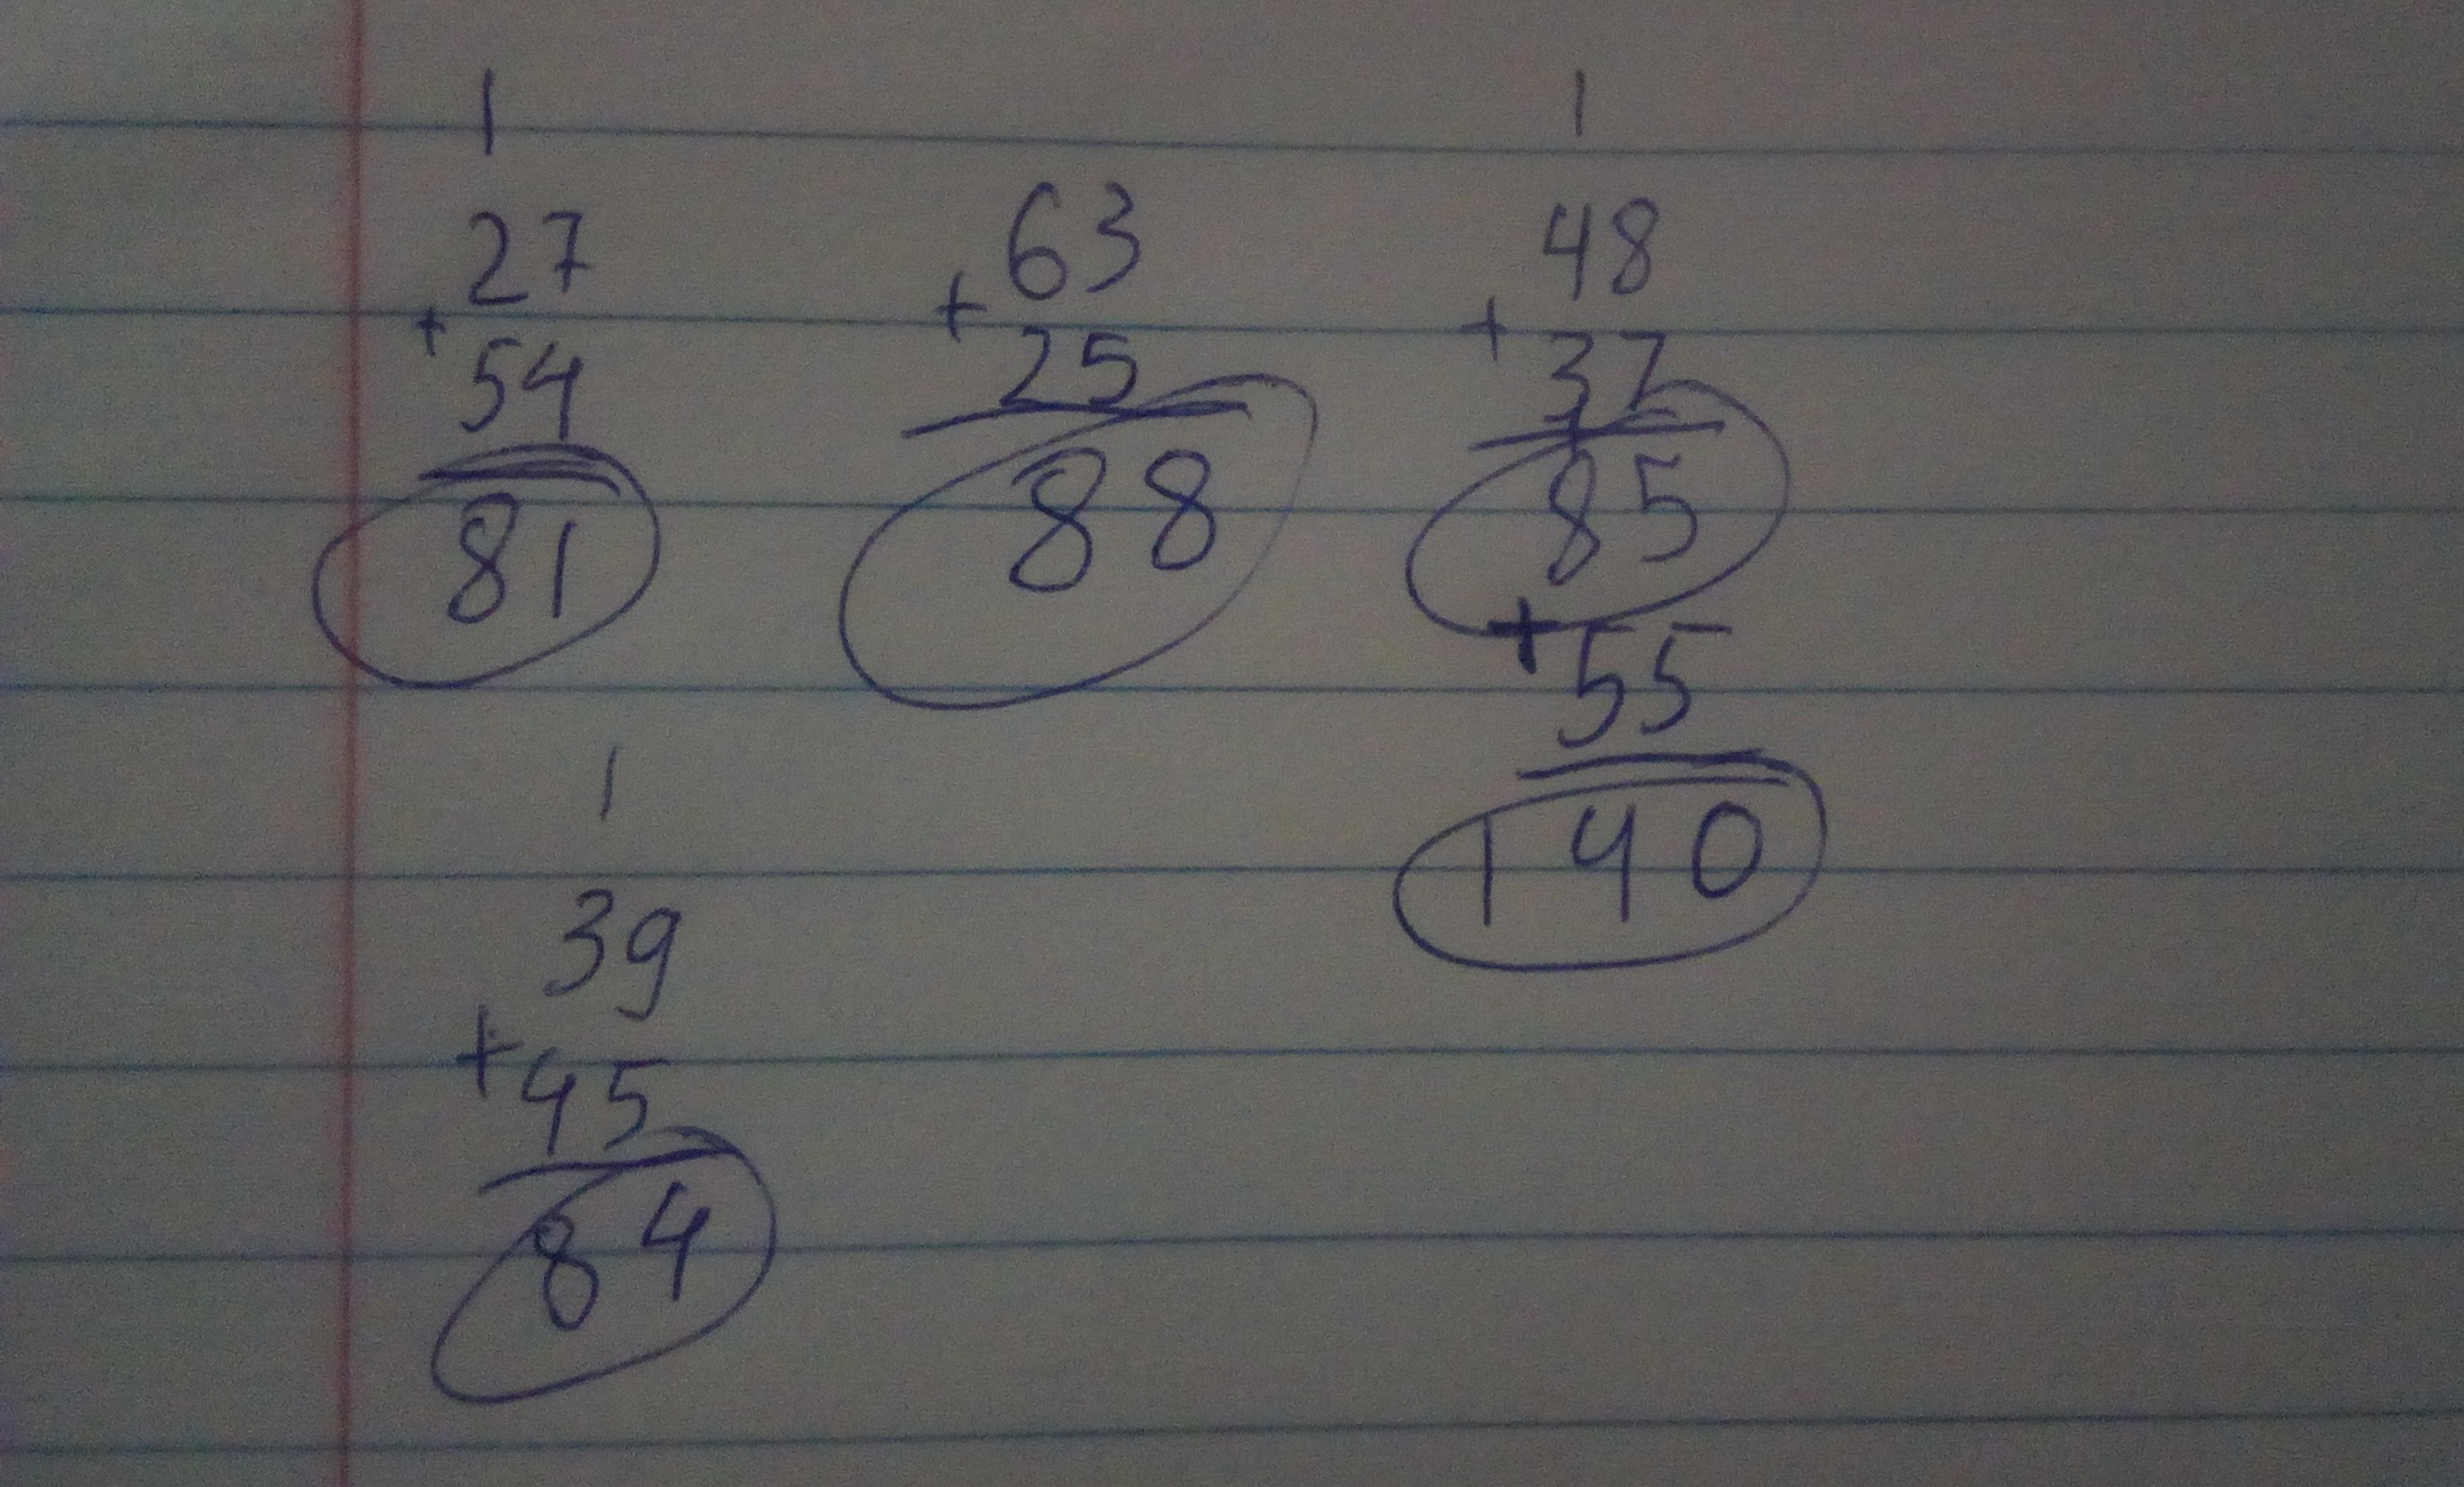 1
27
+
54
81
63
+
25
88
1
48
+
37
85
+
55
140
1
39
+
45
84